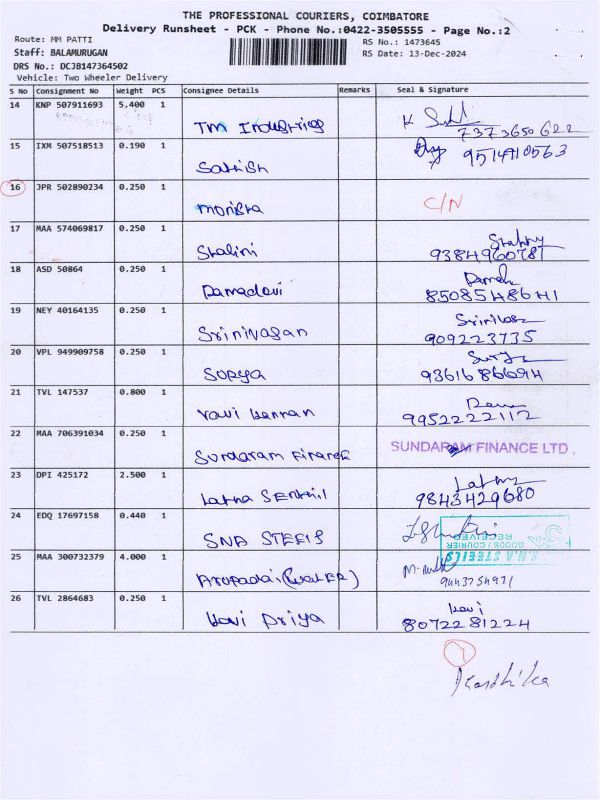 THE PROFESSIONAL COURIERS, COIMBATORE
Delivery Runsheet - PCK - Phone No.:0422-3505555 - Page No.:2
Route: MM PATTI
RS No.: 1473645
Staff: BALAMURUGAN
RS Date: 13-Dec-2024
DRS No.: DCJB147364502
Vehicle: Two Wheeler Delivery
S No Consignment No Weight PCS Consignee Details Remarks Seal & Signature
14 KNP 507911693 5.400 1
TM Industries 7373650622
15 IXM 507518513 0.190 1
Sathish 9514910563
16 JPR 502890234 0.250 1
Monisha C/N
17 MAA 574069817 0.250 1
Shalini 9384960781
18 ASD 50864 0.250 1
Ramadevi 8508548641
19 NEY 40164135 0.250 1
Srinivasan 909223735
20 VPL 949909758 0.250 1
Surya 9361686694
21 TVL 147537 0.800 1
ravi kannan 9952222112
22 MAA 706391034 0.250 1
Sundaram Finance SUNDARAM FINANCE LTD.
23 DPI 425172 2.500 1
Latha Senthil 9843429680
24 EDQ 17697158 0.440 1
SNA STEELS
S.N.A STEELS
GOODS / COURIER
RECEIVER
25 MAA 300732379 4.000 1
Arupadai (WATER) 9443754971
26 TVL 2864683 0.250 1
Kavi Priya Kavi
8072281224
Karthika